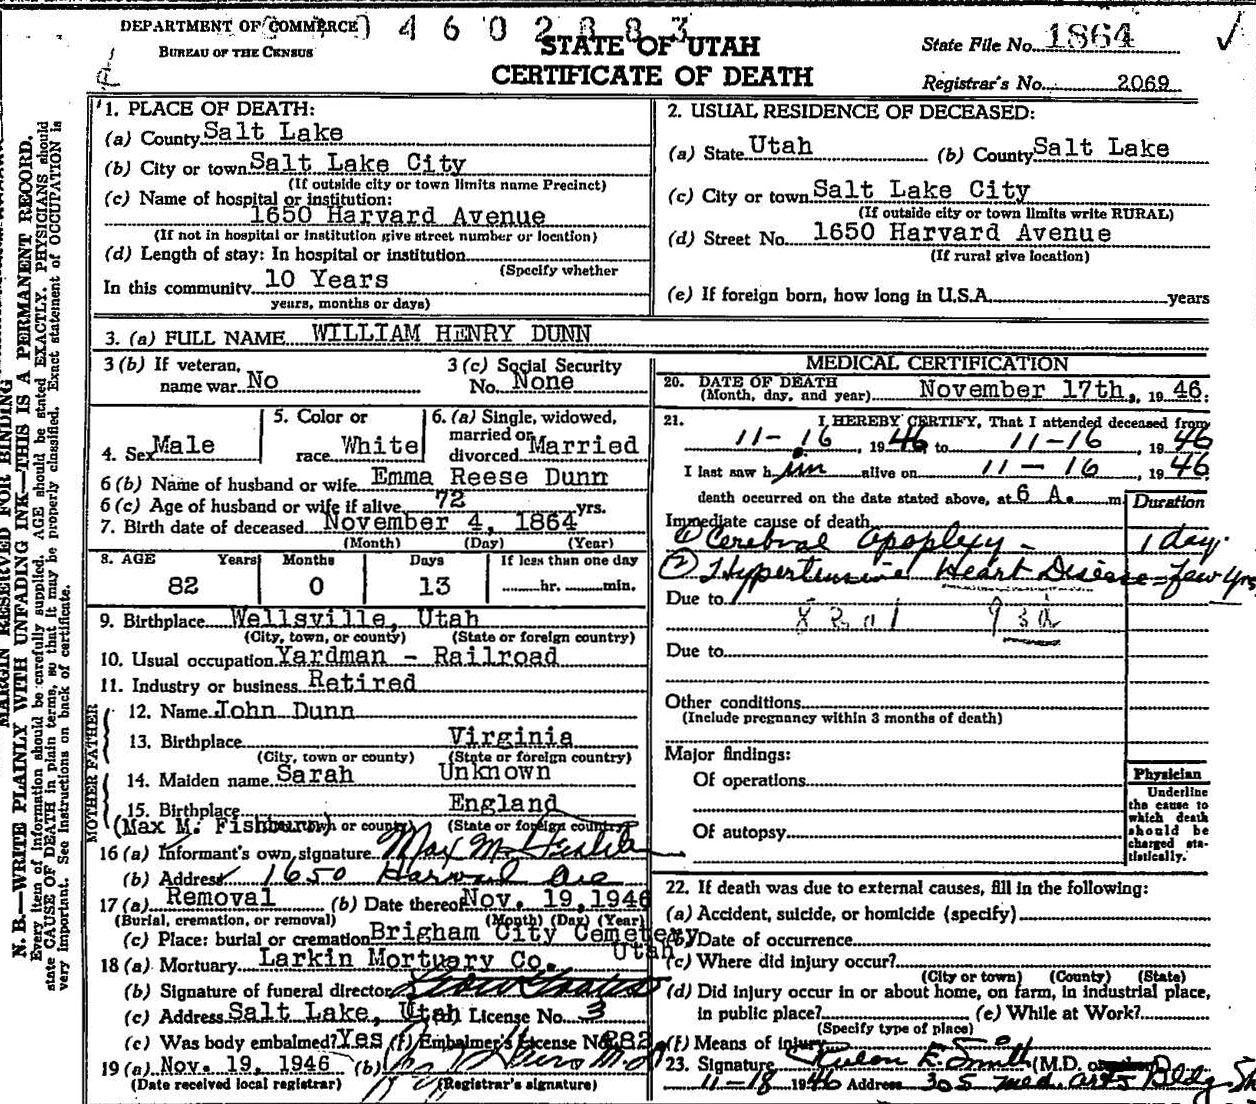 DEPARTMENT OF COMMERCE
BUREAU OF THE CENSUS
4602883
STATE OF UTAH
CERTIFICATE OF DEATH
State File No. 1864
Registrar's No. 2069
MARGIN RESERVED FOR BINDING
N. B.—WRITE PLAINLY WITH UNFADING INK—THIS IS A PERMANENT RECORD.
Every item of information should be carefully supplied. AGE should be stated EXACTLY. PHYSICIANS should
state CAUSE OF DEATH in plain terms, so that it may be properly classified. Exact statement of OCCUPATION is
very important. See instructions on back of certificate.
1. PLACE OF DEATH:
(a) County Salt Lake
(b) City or town Salt Lake City
(If outside city or town limits name Precinct)
(c) Name of hospital or institution:
1650 Harvard Avenue
(If not in hospital or institution give street number or location)
(d) Length of stay: In hospital or institution
(Specify whether
In this community 10 Years
years, months or days)
2. USUAL RESIDENCE OF DECEASED:
(a) State Utah (b) County Salt Lake
(c) City or town Salt Lake City
(If outside city or town limits write RURAL)
(d) Street No. 1650 Harvard Avenue
(If rural give location)
(e) If foreign born, how long in U.S.A. years
3. (a) FULL NAME WILLIAM HENRY DUNN
3 (b) If veteran, name war No
3 (c) Social Security No. None
4. Sex Male
5. Color or race White
6. (a) Single, widowed, married or divorced Married
6 (b) Name of husband or wife Emma Reese Dunn
6 (c) Age of husband or wife if alive 72 yrs.
7. Birth date of deceased November 4, 1864
(Month) (Day) (Year)
8. AGE Years Months Days If less than one day
82 0 13 hr. min.
9. Birthplace Wellsville, Utah
(City, town, or county) (State or foreign country)
10. Usual occupation Yardman - Railroad
11. Industry or business Retired
FATHER
12. Name John Dunn
13. Birthplace Virginia
(City, town, or county) (State or foreign country)
MOTHER
14. Maiden name Sarah Unknown
15. Birthplace England
(Max M. Fishburn) town or county) (State or foreign country)
16 (a) Informant's own signature Max M. Fishburn
(b) Address 1650 Harvard Ave
17 (a) Removal (b) Date thereof Nov. 19, 1946
(Burial, cremation, or removal) (Month) (Day) (Year)
(c) Place: burial or cremation Brigham City Cemetery
Utah
18 (a) Mortuary Larkin Mortuary Co.
(b) Signature of funeral director
(c) Address Salt Lake, Utah License No. 3
(c) Was body embalmed? Yes (f) Embalmer's License No. 282
19 (a) Nov. 19, 1946 (b)
(Date received local registrar) (Registrar's signature)
MEDICAL CERTIFICATION
20. DATE OF DEATH
(Month, day, and year) November 17th, 1946.
21. I HEREBY CERTIFY, That I attended deceased from
11-16, 1946 to 11-16, 1946
I last saw him alive on 11-16, 1946
death occurred on the date stated above, at 6 A. m.
Duration
Immediate cause of death
(1) Cerebral Apoplexy - 1 day.
(2) Hypertensive Heart Disease = few yrs
Due to
Due to
Other conditions
(Include pregnancy within 3 months of death)
Major findings:
Of operations
Of autopsy
Physician
Underline
the cause to
which death
should be
charged sta-
tistically.
22. If death was due to external causes, fill in the following:
(a) Accident, suicide, or homicide (specify)
(b) Date of occurrence
(c) Where did injury occur?
(City or town) (County) (State)
(d) Did injury occur in or about home, on farm, in industrial place,
in public place? (e) While at Work?
(Specify type of place)
(f) Means of injury
23. Signature E. Smith (M.D. or
11-18 1946 Address 305 Med. Arts Bldg.